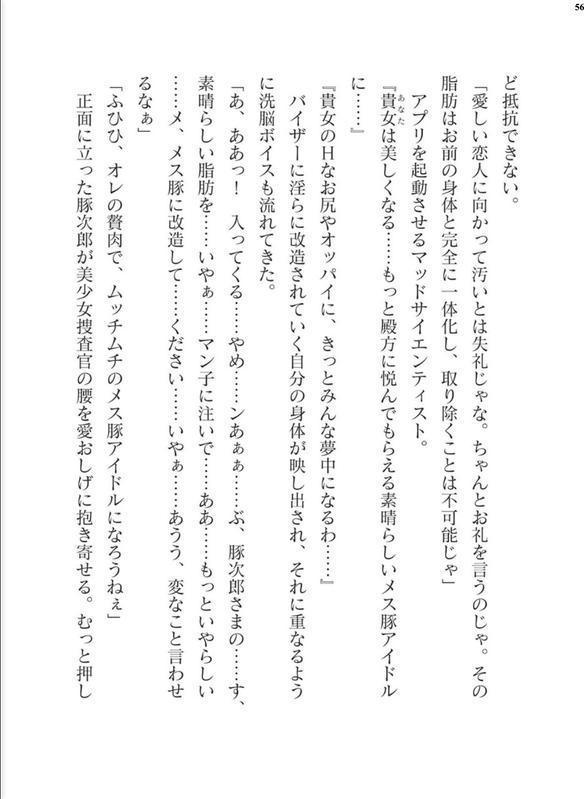 56
ど抵抗できない。
「愛しい恋人に向かって汚いとは失礼じゃな。ちゃんとお礼を言うのじゃ。その
脂肪はお前の身体と完全に一体化し、取り除くことは不可能じゃ」
アプリを起動させるマッドサイエンティスト。
『貴女は美しくなる……もっと殿方に悦んでもらえる素晴らしいメス豚アイドル
あなた
に……』
『貴女のＨなお尻やオッパイに、きっとみんな夢中になるわ……』
バイザーに淫らに改造されていく自分の身体が映し出され、それに重なるよう
に洗脳ボイスも流れてきた。
「あ、ああっ！　入ってくる……やめ……ンあぁぁ……ぶ、豚次郎さまの……す、
素晴らしい脂肪を……いやぁ……マン子に注いで……ああ……もっといやらしい
……メ、メス豚に改造して……ください……いやぁ……あうう、変なこと言わせ
るなぁ」
「ふひひ、オレの贅肉で、ムッチムチのメス豚アイドルになろうねぇ」
正面に立った豚次郎が美少女捜査官の腰を愛おしげに抱き寄せる。むっと押し